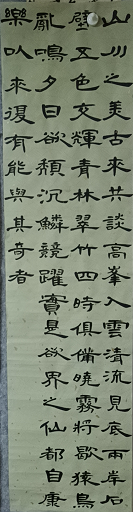 山川之美古來共談高峯入雲清流見底兩岸石
壁五色交輝青林翠竹四時俱備曉霧將歇猿鳥
亂鳴夕日欲頹沉鱗競躍實是欲界之仙都自康
樂以來復有能與其奇者